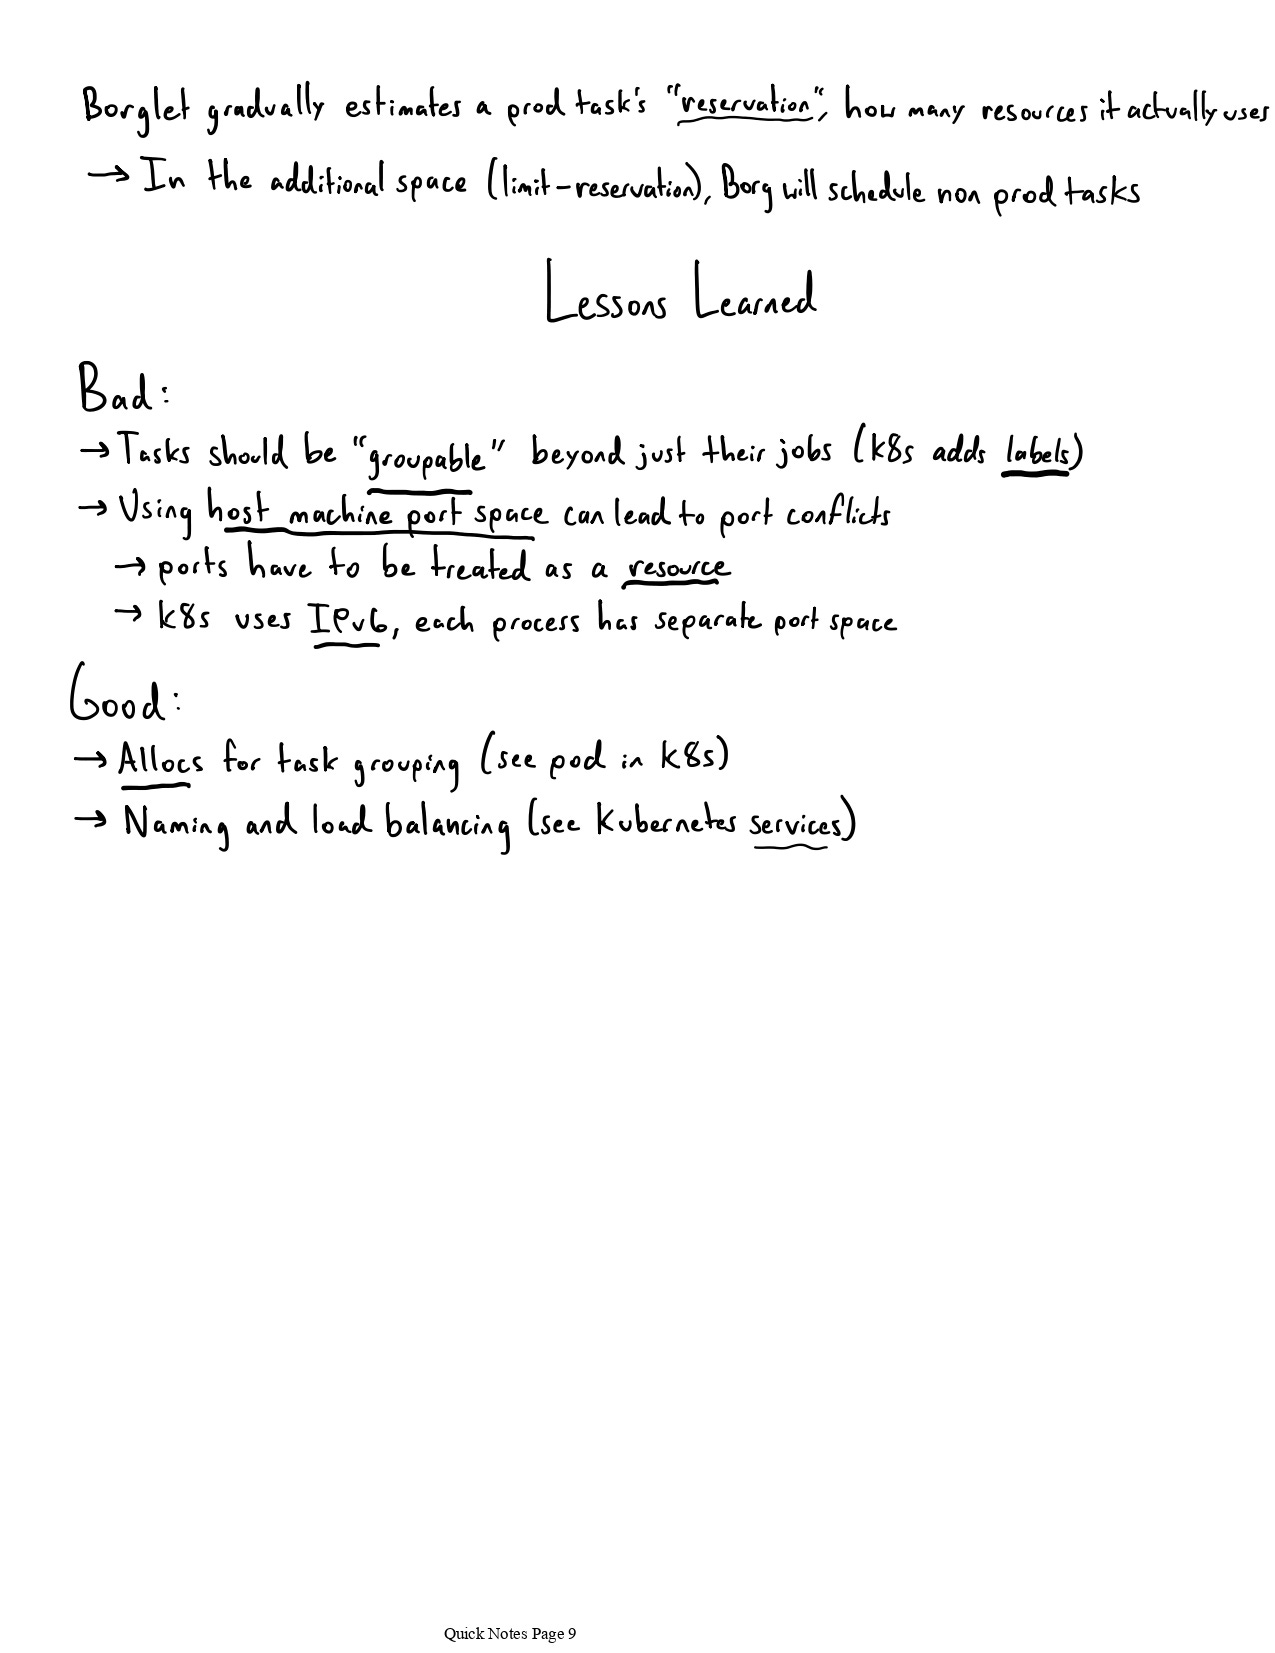 Borglet gradually estimates a prod task's "reservation", how many resources it actually uses
→ In the additional space (limit-reservation), Borg will schedule non prod tasks
Lessons Learned
Bad:
→ Tasks should be "groupable" beyond just their jobs (k8s adds labels)
→ Using host machine port space can lead to port conflicts
→ ports have to be treated as a resource
→ k8s uses IPv6, each process has separate port space
Good:
→ Allocs for task grouping (see pod in k8s)
→ Naming and load balancing (see Kubernetes services)
Quick Notes Page 9